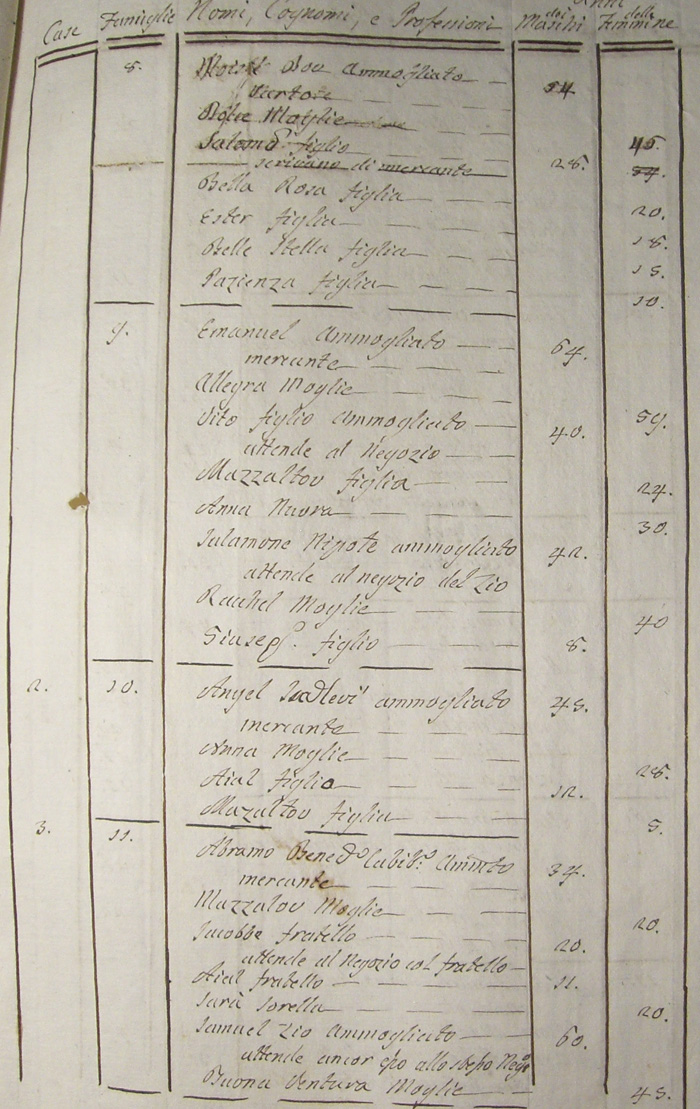 Anni
Case Famiglie Nomi, Cognomi, e Professioni dei Maschi delle Femmine
8. Ammogliato 54
Sartore
Moglie 45.
Salomo figlio 28.
scrivano di mercante
Bella Rosa figlia 20.
Ester figlia 18.
Belle Stella figlia 15.
Pazienza figlia 10.
9. Emanuel Ammogliato 64.
mercante
Allegra Moglie 59.
Vito figlio Ammogliato 40.
attende al Negozio
Mazzaltov figlia 24.
Anna Nuora 30.
Salamone Nipote ammogliato 42.
attende al negozio del Zio
Rachel Moglie 40
Giusep. figlio 8.
2. 10. Angel ammogliato 45.
mercante
Anna Moglie 28.
figlio 12.
Mazaltov figlia 5.
3. 11. Abramo 34.
mercante
Mazzalov Moglie 20.
Jacobbe fratello 20.
attende al Negozio col fratello
fratello 11.
Sara Sorella 20.
Samuel Zio Ammogliato 60.
attende ancor epo allo stepo
Buona Ventura Moglie 45.